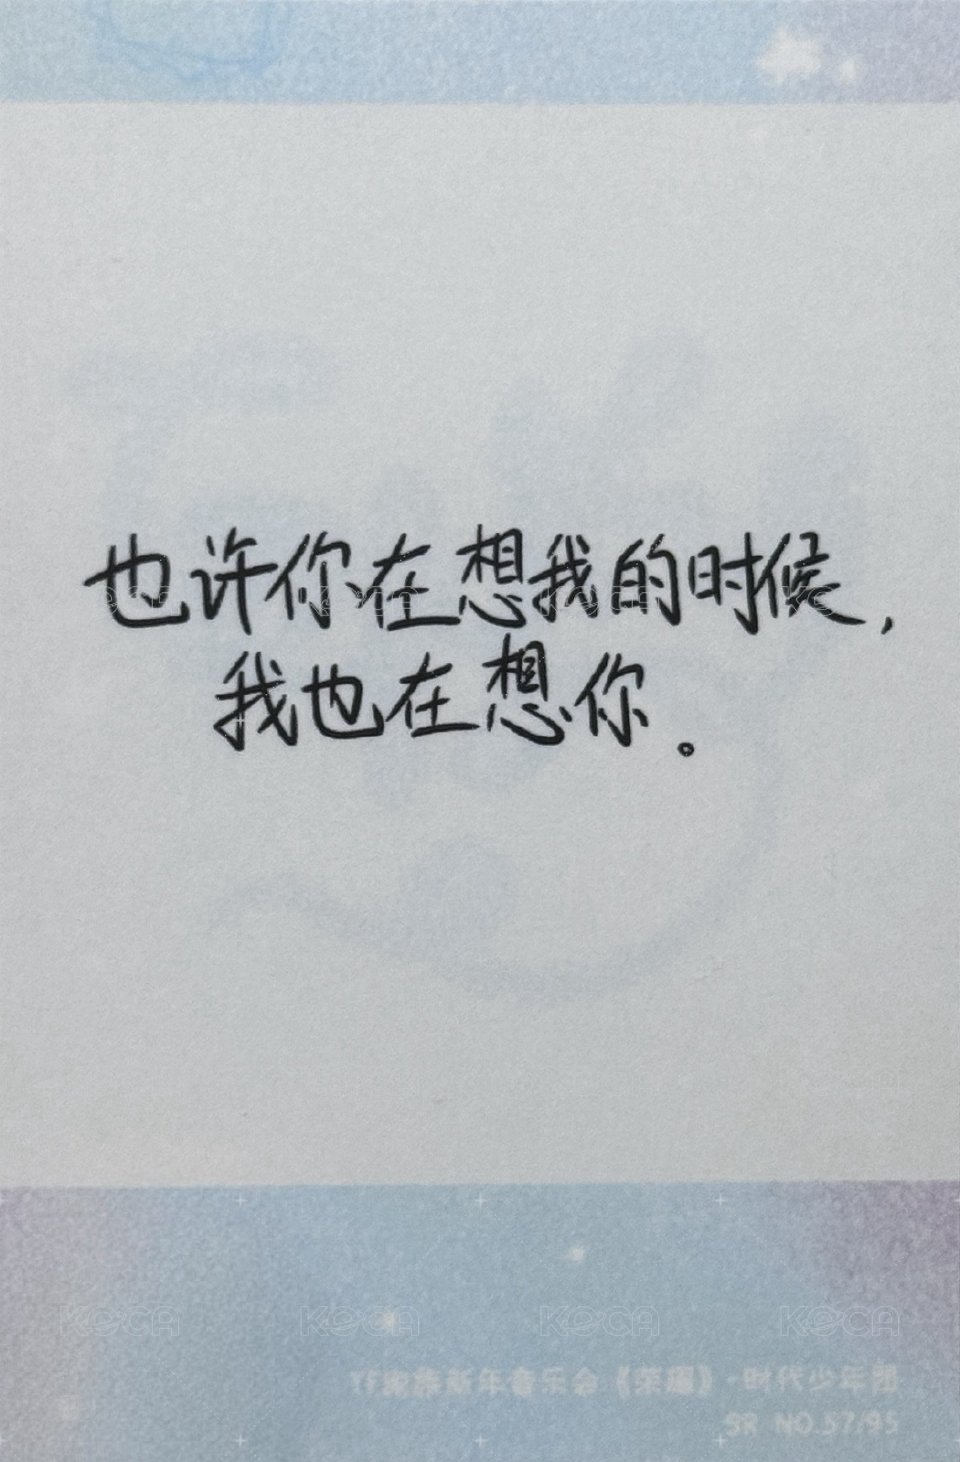 也许你在想我的时候,
我也在想你。
KOCA KOCA KOCA KOCA
YF家族新年音乐会《荣曜》-时代少年团
SR NO.57/95